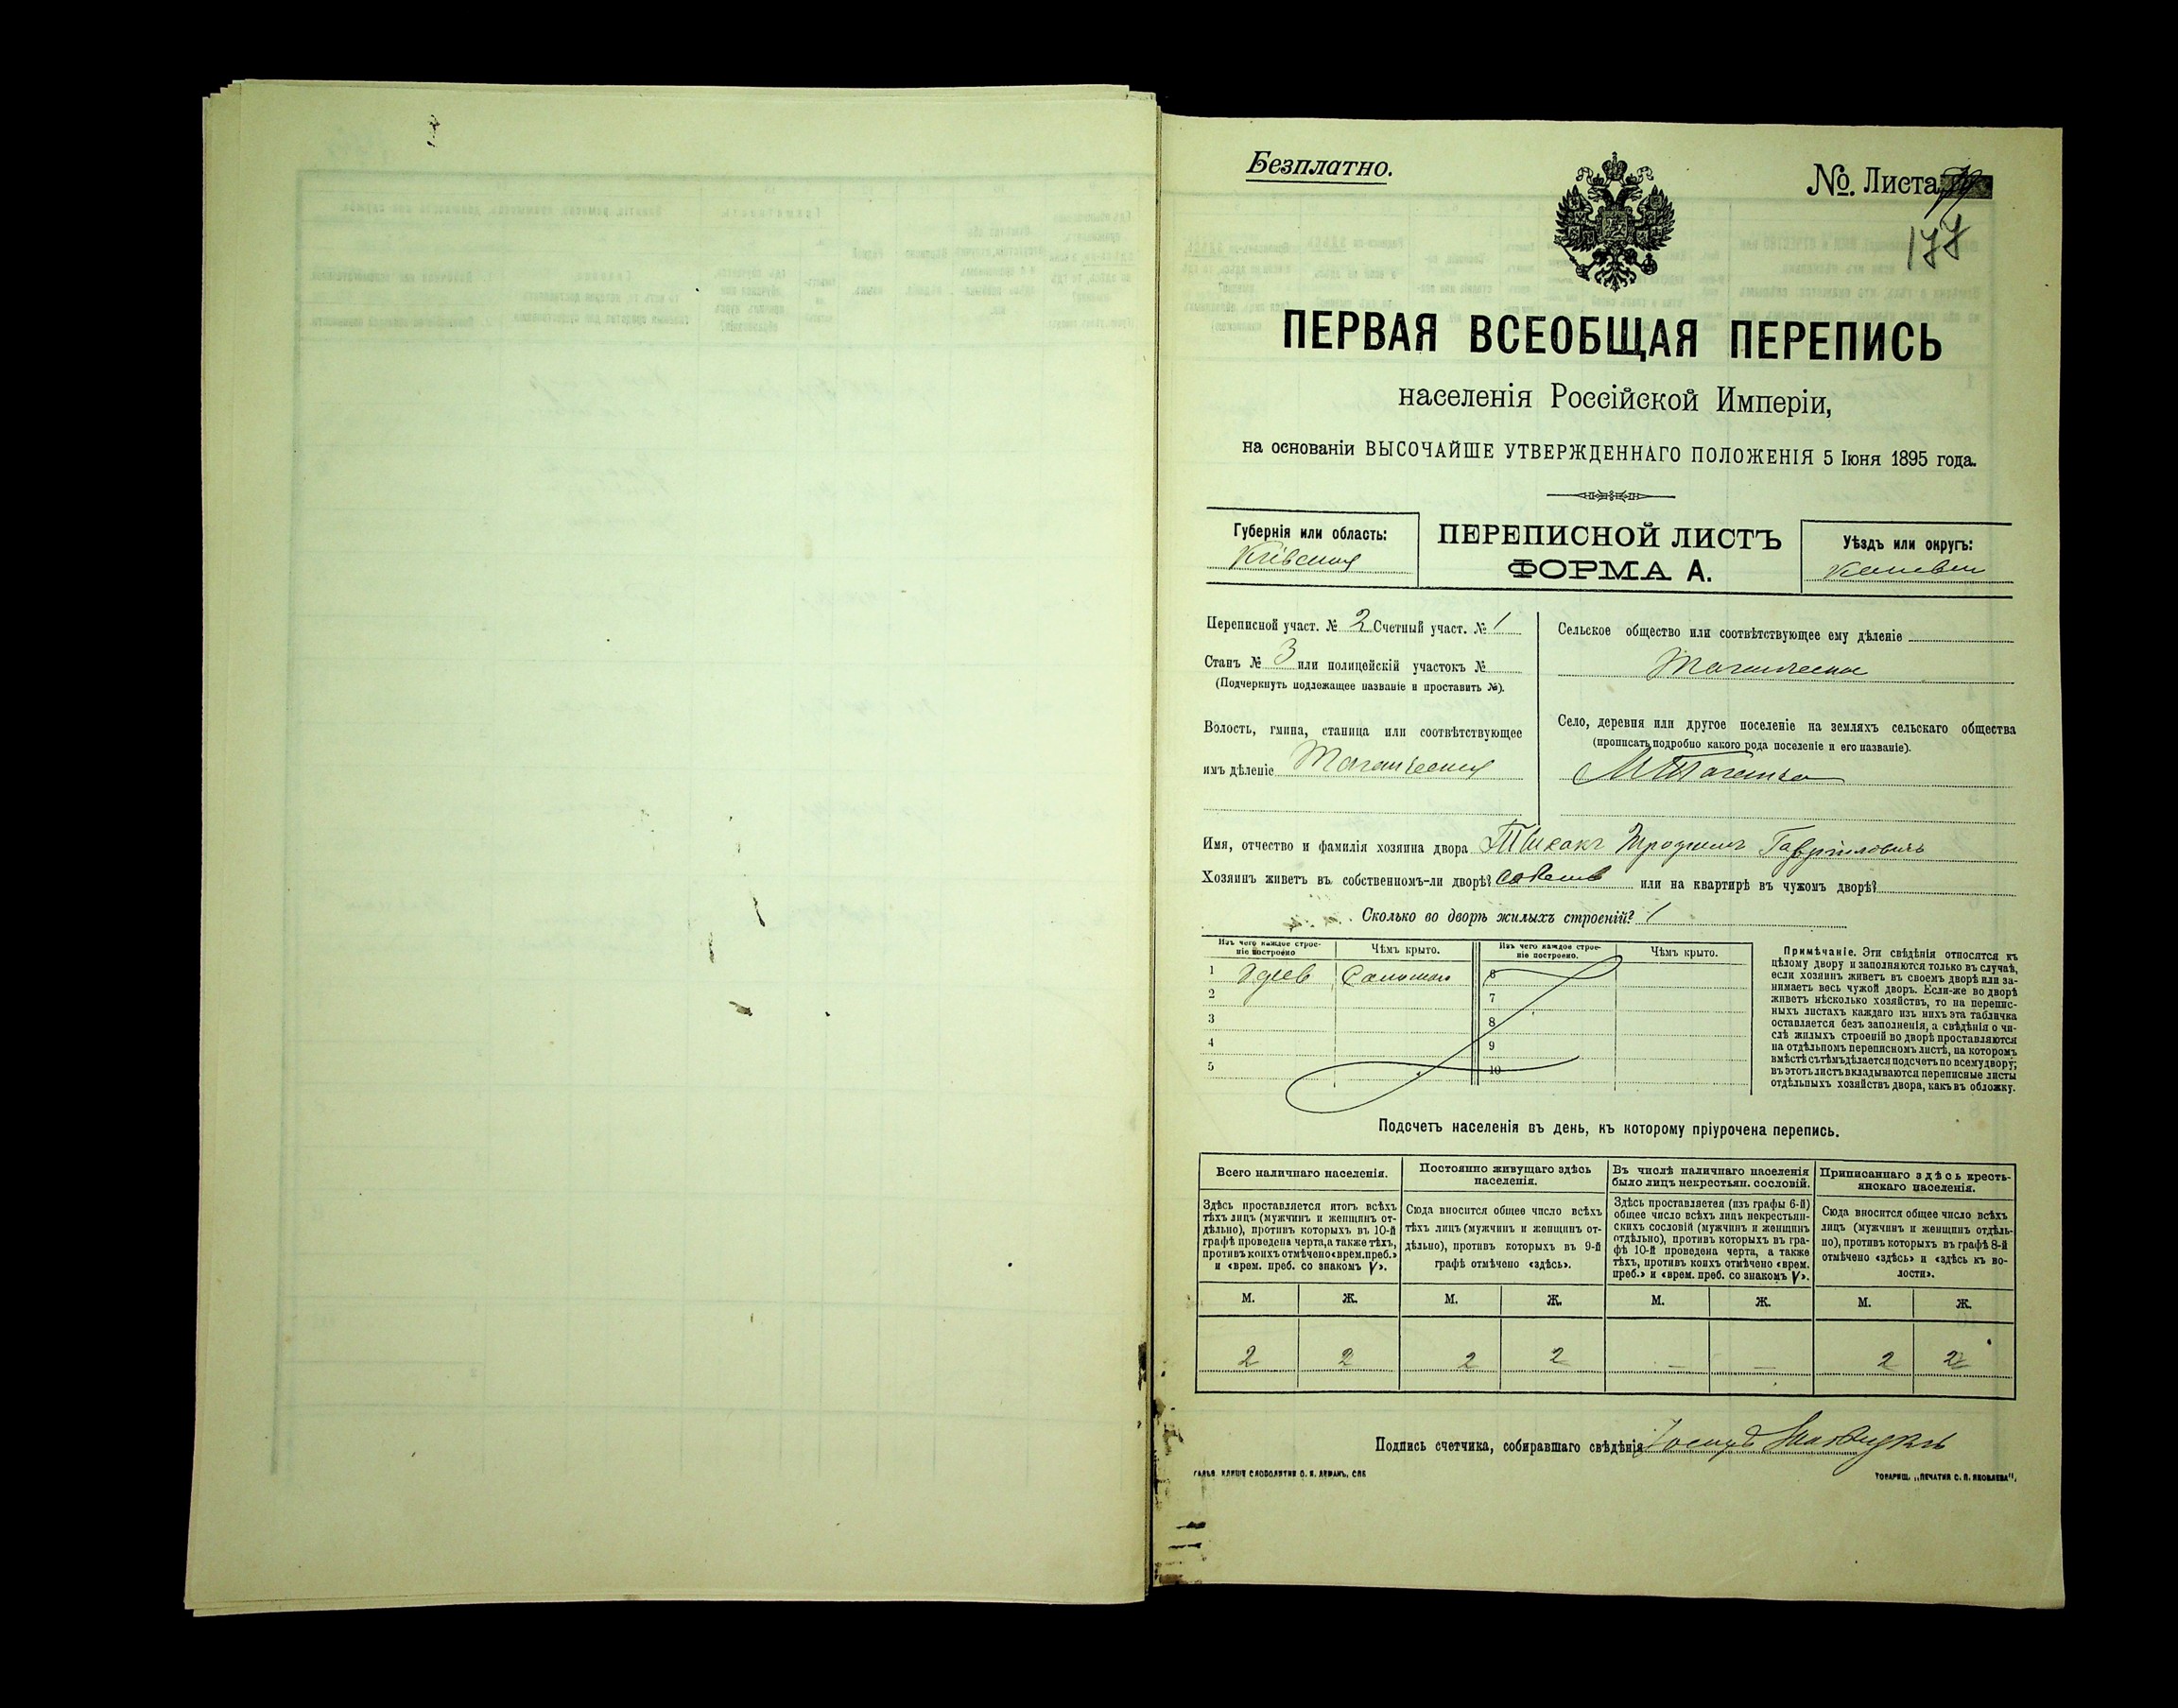 Безплатно.
№. Листа
177
ПЕРВАЯ ВСЕОБЩАЯ ПЕРЕПИСЬ
населенія Россійской Имперіи,
на основаніи ВЫСОЧАЙШЕ УТВЕРЖДЕННАГО ПОЛОЖЕНІЯ 5 Іюня 1895 года.
Губернія или область:
Кіевская
ПЕРЕПИСНОЙ ЛИСТЪ
ФОРМА А.
Уѣздъ или округъ:
Переписной участ. № 2 Счетный участ. № 1
Станъ № 3 или полицейскій участокъ №
(Подчеркнуть подлежащее названіе и проставить №).
Волость, гмина, станица или соотвѣтствующее
имъ дѣленіе Таганчская
Сельское общество или соотвѣтствующее ему дѣленіе
Таганчское
Село, деревня или другое поселеніе на земляхъ сельскаго общества
(прописать подробно какого рода поселеніе и его названіе).
М Таганча
Имя, отчество и фамилія хозяина двора Гавриловичъ
Хозяинъ живетъ въ собственномъ-ли дворѣ? или на квартирѣ въ чужомъ дворѣ?
Сколько во дворѣ жилыхъ строеній? 1
Изъ чего каждое строе-
ніе построено
Чѣмъ крыто.
Изъ чего каждое строе-
ніе построено.
Чѣмъ крыто.
1 Дерев Соломою 6
2 7
3 8
4 9
5 10
Примѣчаніе. Эти свѣдѣнія относятся къ
цѣлому двору и заполняются только въ случаѣ,
если хозяинъ живетъ въ своемъ дворѣ или за-
нимаетъ весь чужой дворъ. Если-же во дворѣ
живетъ нѣсколько хозяйствъ, то на перепис-
ныхъ листахъ каждаго изъ нихъ эта табличка
оставляется безъ заполненія, а свѣдѣнія о чи-
слѣ жилыхъ строеній во дворѣ проставляются
на отдѣльномъ переписномъ листѣ, на которомъ
вмѣстѣ съ тѣмъ дѣлается подсчетъ по всему двору;
въ этотъ листъ вкладываются переписные листы
отдѣльныхъ хозяйствъ двора, какъ въ обложку.
Подсчетъ населенія въ день, къ которому пріурочена перепись.
Всего наличнаго населенія.
Здѣсь проставляется итогъ всѣхъ
тѣхъ лицъ (мужчинъ и женщинъ от-
дѣльно), противъ которыхъ въ 10-й
графѣ проведена черта, а также тѣхъ,
противъ коихъ отмѣчено «врем. преб.»
и «врем. преб. со знакомъ V».
Постоянно живущаго здѣсь
населенія.
Сюда вносится общее число всѣхъ
тѣхъ лицъ (мужчинъ и женщинъ от-
дѣльно), противъ которыхъ въ 9-й
графѣ отмѣчено «здѣсь».
Въ числѣ наличнаго населенія
было лицъ некрестьян. сословій.
Здѣсь проставляется (изъ графы 6-й)
общее число всѣхъ лицъ некрестьян-
скихъ сословій (мужчинъ и женщинъ
отдѣльно), противъ которыхъ въ гра-
фѣ 10-й проведена черта, а также
тѣхъ, противъ коихъ отмѣчено «врем.
преб.» и «врем. преб. со знакомъ V».
Приписаннаго здѣсь кресть-
янскаго населенія.
Сюда вносится общее число всѣхъ
лицъ (мужчинъ и женщинъ отдѣль-
но), противъ которыхъ въ графѣ 8-й
отмѣчено «здѣсь» и «здѣсь къ во-
лости».
М. Ж. М. Ж. М. Ж. М. Ж.
2 2 2 2 — — 2 2
Подпись счетчика, собиравшаго свѣдѣнія Іосифъ
ГАЛЬВ. КЛИШЕ СЛОВОЛИТНИ О. И. ЛЕМАНЪ, СПБ
ТОВАРИЩ. „ПЕЧАТНЯ С. П. ЯКОВЛЕВА“.